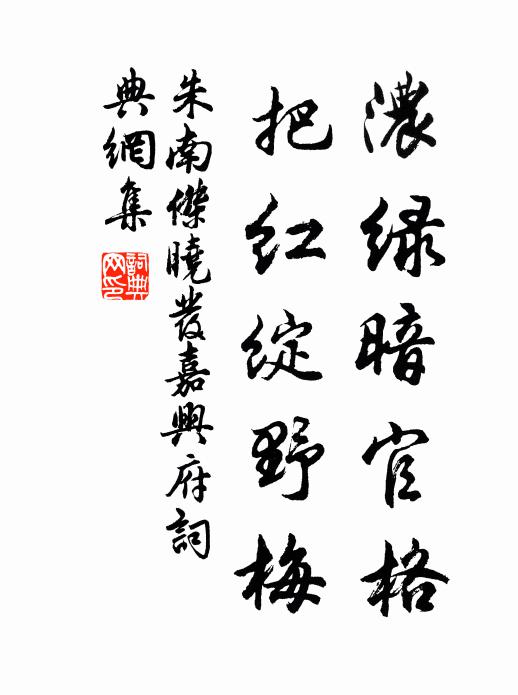 濃绿暗官格
把红綻野梅
朱南傑曉發嘉興府詞
典網集
詞典
网印